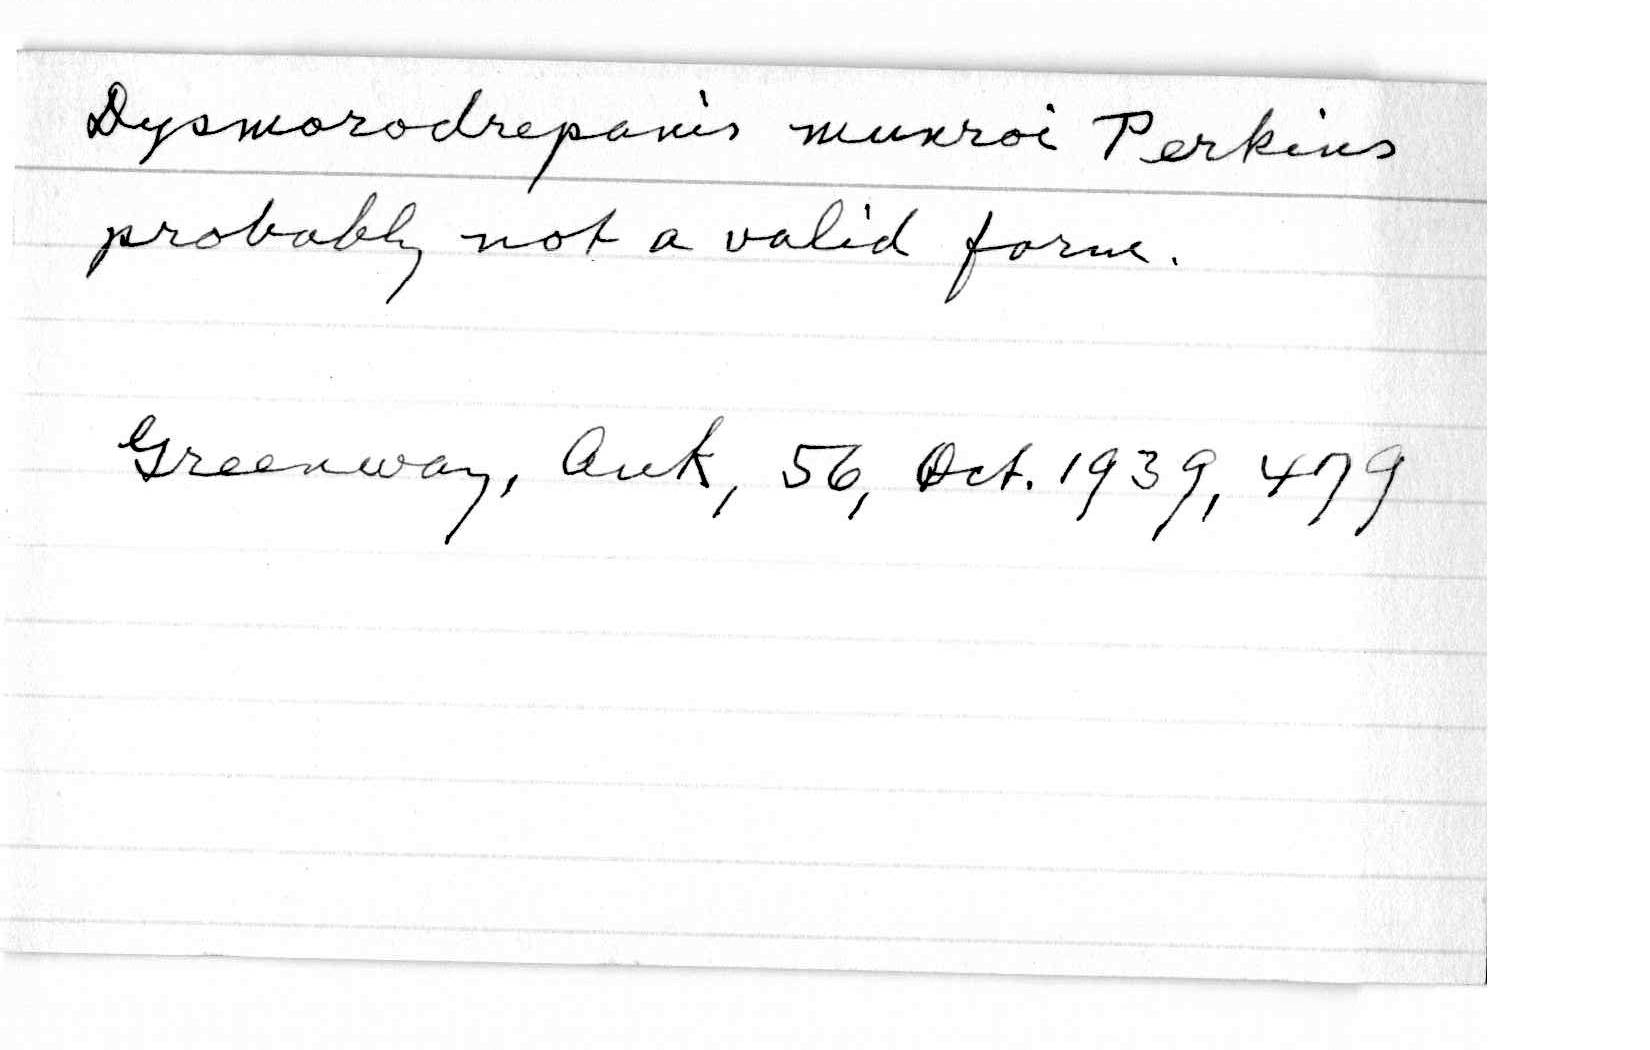 Dysmorodrepanis munroi Perkins
probably not a valid form.
Greenway, Auk, 56, Oct. 1939, 479